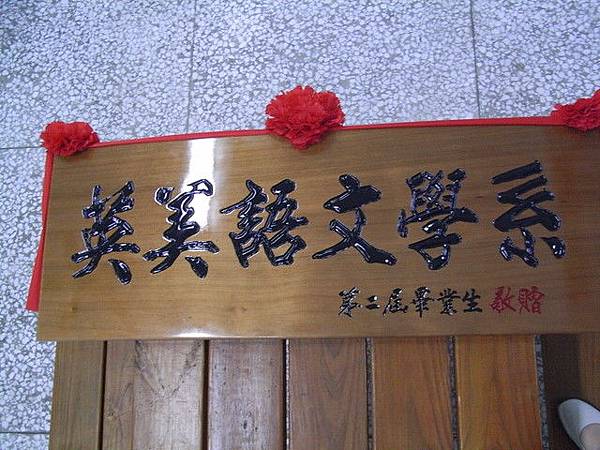 英美語文學系
第二屆畢業生敬贈